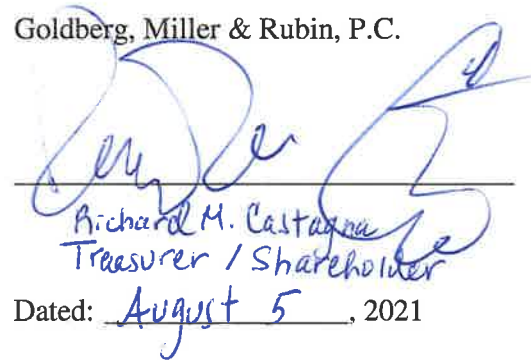 Goldberg, Miller & Rubin, P.C.
Richard M. Castagna
Treasurer / Shareholder
Dated: August 5, 2021